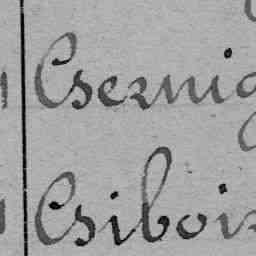 Csernig
Csibois